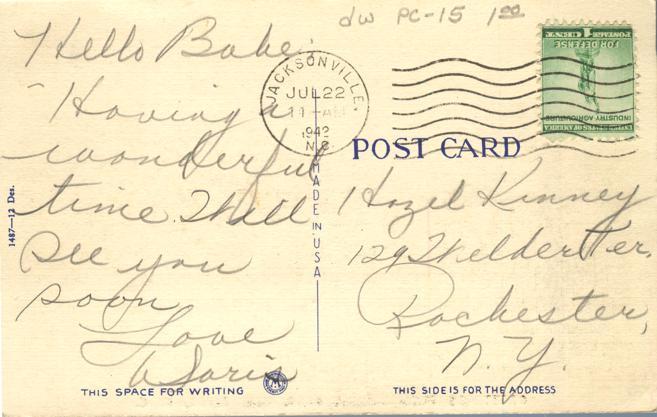 dw PC-15 1.00
Hello Babe.
Having a
wonderful
time. Will
see you
soon
Love
Doris
JACKSONVILLE.
JUL 22
11-AM
1942
N.C.
FOR DEFENSE
POSTAGE 1 CENT
INDUSTRY AGRICULTURE
UNITED STATES OF AMERICA
POST CARD
Hazel Kinney
129
Ter.
Rochester,
N.Y.
MADE IN USA
1487—12 Des.
THIS SPACE FOR WRITING
THIS SIDE IS FOR THE ADDRESS